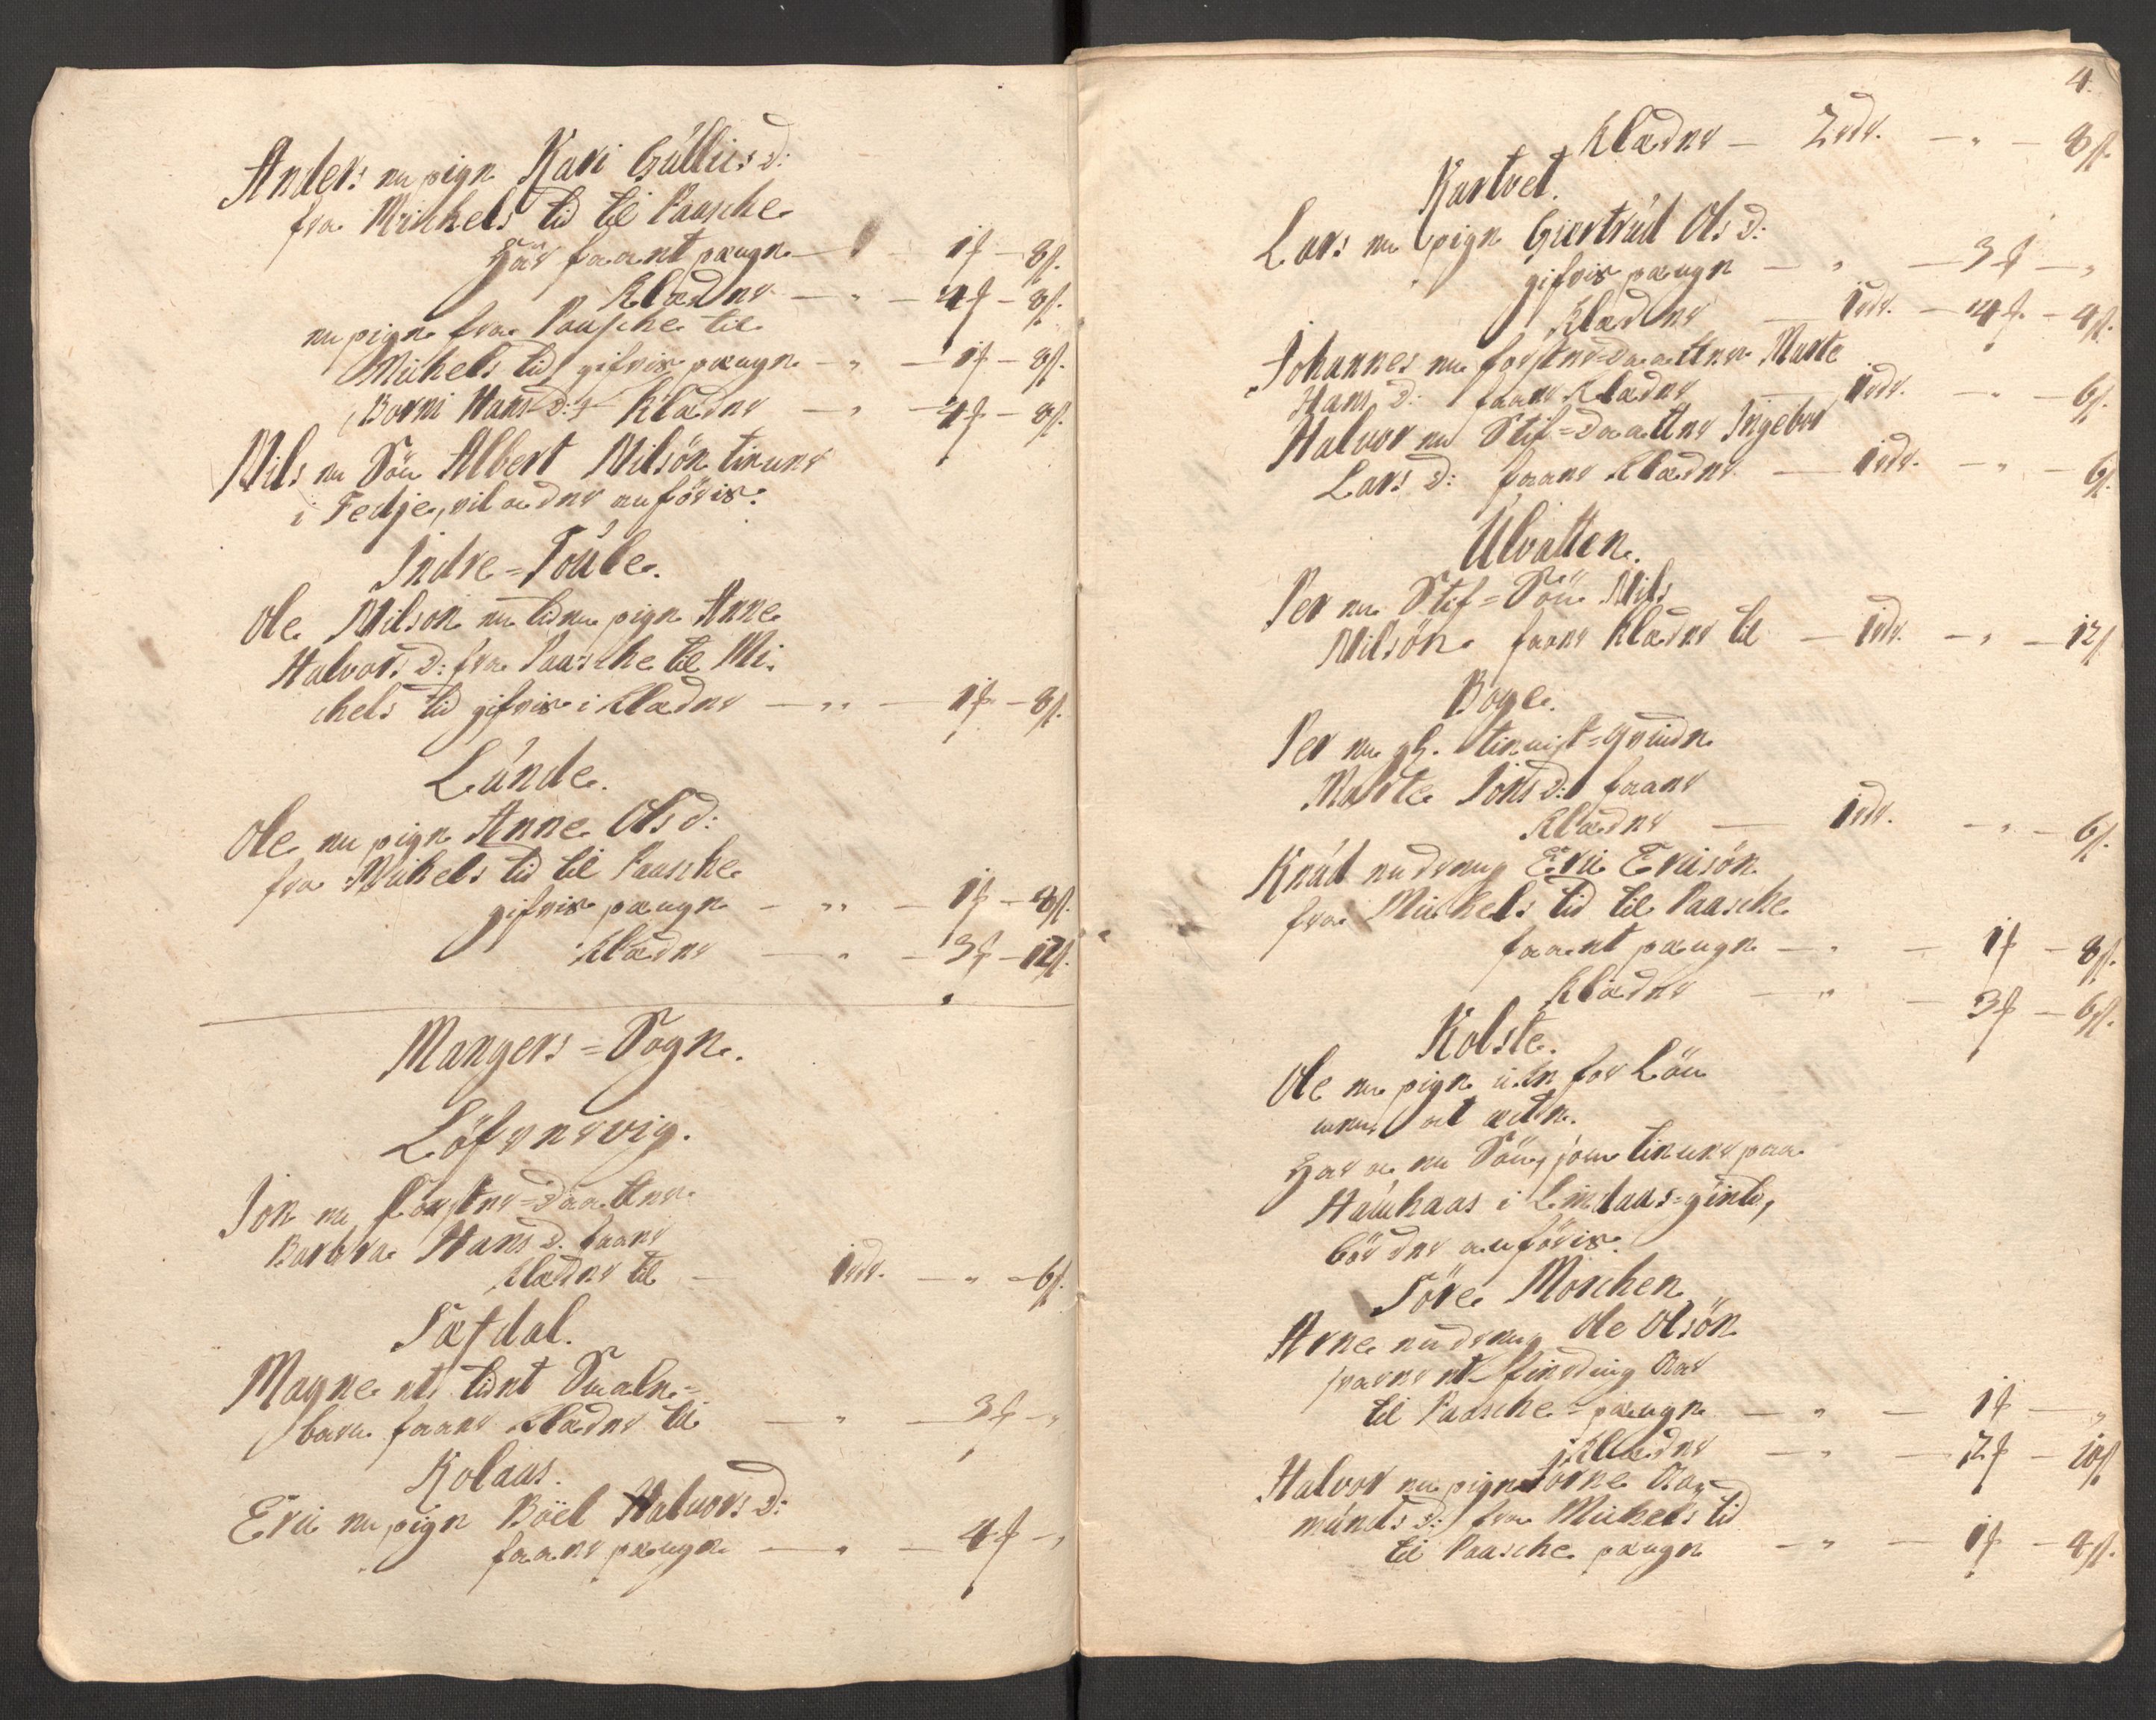 Anders en pige Kari Gulliksd:
fra Michels tid til Paasche
Har faaet pænge — 1f — 8s.
Klæder — „ — 4f — 8s.
en pige fra Paasche til
Michels tid gifvis pænge — „ — 1f — 8s.
Borni Hansd: Klæder — „ — 4f — 8s.
Nils en Sön Albert Nilsön tiener
i Fedje, vil anföris.
Indre-Toule.
Ole Nilsön en liden pige Anne
Halvorsd: fra Paasche til Mi-
chels tid gifvis i Klæder — „ — 1f — 8s.
Lunde.
Ole en pige Anne Olsd:
fra Michels tid til Paasche
gifvis pænge — „ — 1f — 8s.
Klæder — „ — 3f — 12s.
Mangers-Sogn.
Löfvervig.
Jon en foster-daatter
Barbra Hansd. faaer
Klæder til — 1rdr. — „ — 6s.
Sætdal.
Magne et lidet Smale-
barn faaer Klæder til — „ — 3f — „
Kolaas.
Eric en pige Boel Halvorsd:
faaer pænge — „ — 4f — „
4.
Klæder — 2rdr. — „ — 8s.
Kartvet.
Lars en pige Giertrud Olsd:
gifvis pænge — „ — 3f — „
Klæder — 1rdr. — 4f. — 4s.
Johannes en foster-daatter Marte
Hansd: faaer Klæder — 1rdr. — „ — 6s.
Halvor en Stif-daatter Ingebor
Larsd: faaer Klæder — 1rdr. — „ — 6s.
Ulvatten.
Per en Stif-Sön Nils
Nilsön faaer Klæder til — 1rdr. — „ — 12s
Boge.
Per en gl. tienist-qvinde
Marte Jonsd: faaer
Klæder — 1rdr. — „ — 6s.
Knud en dreng Eric Ericsön
fra Michels tid til Paasche
faaet pænge — „ — 1f — 8s.
Klæder — „ — 3f — 6s.
Kolste.
Ole en pige uden for Lön
men at æde.
Har en Sön, som tiener paa
Hauhaas i Lindaas-gield,
bör der anföris.
Söre Morchen
Arne en dreng Ole Olsön
til Paasche-pænge — „ — 1f — „
i Klæder — „ — 2f — 10s
Halvor en pige Torne Aa-
mundsd: fra Michels tid
til Paasche pænge — „ — 1f — 4s.